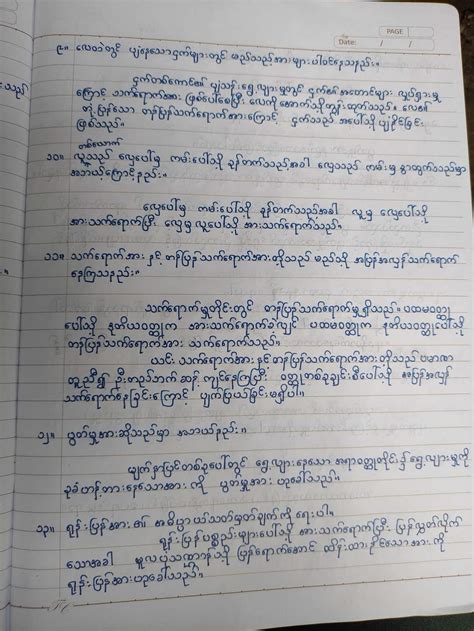 PAGE
Date: / /
၉။ လေထဲတွင် ပျံနေသောငှက်များတွင် မည်သည့်အားများပါဝင်နေသနည်း။
ငှက်တစ်ကောင်၏ ပျံသန်းရွေ့လျားမှုတွင် ငှက်၏အတောင်များ လှုပ်ရှားမှု
ကြောင့် သက်ရောက်အား ဖြစ်ပေါ်စေပြီး လေကိုအောက်သို့တွန်းထုတ်သည်။ လေ၏
တုံ့ပြန်သော တန်ပြန်သက်ရောက်အားကြောင့် ငှက်သည် အပေါ်သို့ပျံနိုင်ခြင်း
ဖြစ်သည်။
တစ်ယောက်
၁၀။ လူသည် လှေပေါ်မှ ကမ်းပေါ်သို့ ခုန်တက်သည့်အခါ လှေသည် ကမ်းမှ ခွာထွက်သည်မှာ
အဘယ့်ကြောင့်နည်း။
လှေပေါ်မှ ကမ်းပေါ်သို့ ခုန်တက်သည့်အခါ လူမှ လှေပေါ်သို့
အားသက်ရောက်ပြီး လှေမှ လူပေါ်သို့ အားသက်ရောက်သည်။
၁၁။ သက်ရောက်အား နှင့် တန်ပြန်သက်ရောက်အားတို့သည် မည်သို့ အပြန်အလှန်သက်ရောက်
နေကြသနည်း။
သက်ရောက်မှုတိုင်းတွင် တန်ပြန်သက်ရောက်မှုရှိသည်။ ပထမဝတ္ထု
ပေါ်သို့ ဒုတိယဝတ္ထုက အားသက်ရောက်ခဲ့လျှင် ပထမဝတ္ထုက ဒုတိယဝတ္ထုပေါ်သို့
တန်ပြန်သက်ရောက်အား သက်ရောက်သည်။
ယင်း သက်ရောက်အားနှင့်တန်ပြန်သက်ရောက်အားတို့သည် ပမာဏ
တူညီ၍ ဦးတည်ဘက် ဆန့်ကျင်နေကြပြီး ဝတ္ထုတစ်ခုချင်းစီပေါ်သို့ အပြန်အလှန်
သက်ရောက်နေခြင်းကြောင့် ပျက်ပြယ်ခြင်းမရှိပါ။
၁၂။ ပွတ်မှုအားဆိုသည်မှာ အဘယ်နည်း။
မျက်နှာပြင်တစ်ခုပေါ်တွင် ရွေ့လျားနေသော အရာဝတ္ထုတိုင်း၌ ရွေ့လျားမှုကို
ခုခံဟန့်တားနေသောအား ကို ပွတ်မှုအား ဟုခေါ်သည်။
၁၃။ ရုန်းပြန်အား ၏ အဓိပ္ပာယ်သတ်မှတ်ချက်ကို ရေးပါ။
ရုန်းပြန်ပစ္စည်းများပေါ်သို့ အားသက်ရောက်ပြီး ပြန်လွှတ်လိုက်
သောအခါ မူလပုံသဏ္ဌာန်သို့ ပြန်ရောက်အောင် ထိန်းထားနိုင်သောအား ကို
ရုန်းပြန်အားဟုခေါ်သည်။